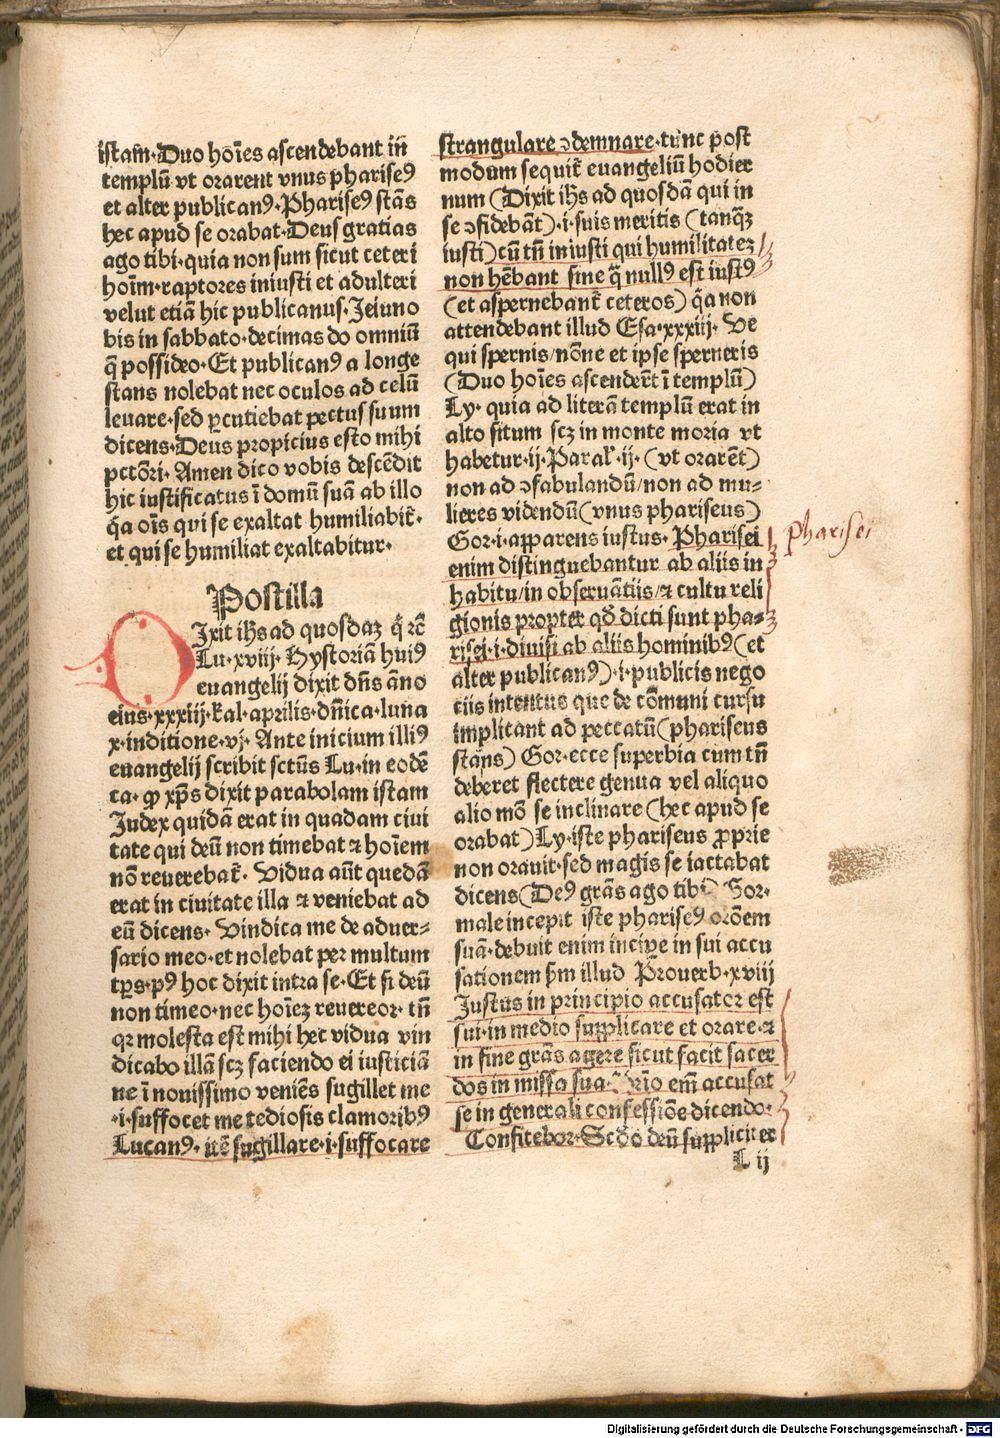 istam̄·Duo hoīes ascendebant in̄
templū vt orarent vnus phariseꝰ
et alter publicanꝰ·Phariseꝰ stās
hec apud se orabat·Deus gratias
ago tibi·quia non sum sicut ceteri
hoīm·raptores iniusti et adulteri
velut etiā hic publicanus·Jeiuno
bis in sabbato·decimas do omniū
q̄ possideo·Et publicanꝰ a longe
stans nolebat nec oculos ad celū
leuare·sed ꝑcutiebat pectus suum
dicens·Deus propicius esto mihi
pctōri·Amen dico vobis descēdit
hic iustificatus ī domū suā ab illo
q̄a oīs qui se exaltat humiliabit̄·
et qui se humiliat exaltabitur·
Postilla
DIxit ihs̄ ad quosdaꝫ q̄ rē
Lu·xviij·Hystoriā huiꝰ
euangelij dixit dn̄s āno
eius·xxxiij·kal·aprilis·dn̄ica·luna
x·inditione·vj·Ante inicium illiꝰ
euangelij scribit sctūs Lu·in eodē
ca·ꝙ xp̄s dixit parabolam istam
Judex quidā erat in quadam ciui
tate qui deū non timebat ⁊ hoīem
nō reuerebat̄·Vidua aūt quedā
erat in ciuitate illa ⁊ veniebat ad
eū dicens·Vindica me de aduer⸗
sario meo·et nolebat per multum
tp̄s·pꝰ hoc dixit intra se·Et si deū
non timeo·nec hoīeꝫ reuereor·tn̄
qꝛ molesta est mihi hec vidua vin
dicabo illā scꝫ faciendo ei iusticiā
ne ī nouissimo veniēs sugillet me
·i·suffocet me tediosis clamoribꝰ
Lucanꝰ· sugillare·i·suffocare
strangulare ꝯdemnare·tūnc post
modum sequit̄ euangeliū hodier
num (Dixit ihs̄ ad quosdā qui in
se ꝯfidebāt)·i·suis meritis (tanq̄ꝫ
iusti) cū tn̄ iniusti qui humilitateꝫ
non hēbant sine q̄ nullꝰ est iustꝰ
(et aspernebant̄ ceteros) q̄a non
attendebant illud Esa·xxxiij·Ve
qui spernis/nōne et ipse sperneris
(Duo hoīes ascenderūt ī templū)
Ly·quia ad literā templū erat in
alto situm scꝫ in monte moria vt
habetur·ij·Paral̄·ij·(vt orarēt)
non ad ꝯfabulandū/non ad mu⸗
lieres videndū (vnus phariseus)
Gor·i·apparens iustus·Pharisei
enim distinguebantur ab aliis in
habitu/in obseruātiis/⁊ cultu reli
gionis propter qd̄ dicti sunt pha⸗
risei·i·diuisi ab aliis hominibꝰ (et
alter publicanꝰ)·i·publicis nego
ciis intentus que de cōmuni cursu
implicant ad peccatū (phariseus
stans) Gor·ecce superbia cum tn̄
deberet flectere genua vel aliquo
alio mō se inclinare (hec apud se
orabat) Ly·iste phariseus ꝓprie
non orauit·sed magis se iactabat
dicens (Deꝰ grās ago tibi) Gor·
male incepit iste phariseꝰ orōem
suā·debuit enim incipe in sui accu
sationem ẜm illud Prouerb·xviij
Justus in principio accusator est
sui·in medio supplicare et orare·⁊
in fine grās agere sicut facit sacer
dos in missa sua· em̄ accusat
se in generali confessiōe dicendo·
Confitebor·Scdo deū suppliciter
L ij
Pharisei
Digitalisierung gefördert durch die Deutsche Forschungsgemeinschaft - DFG